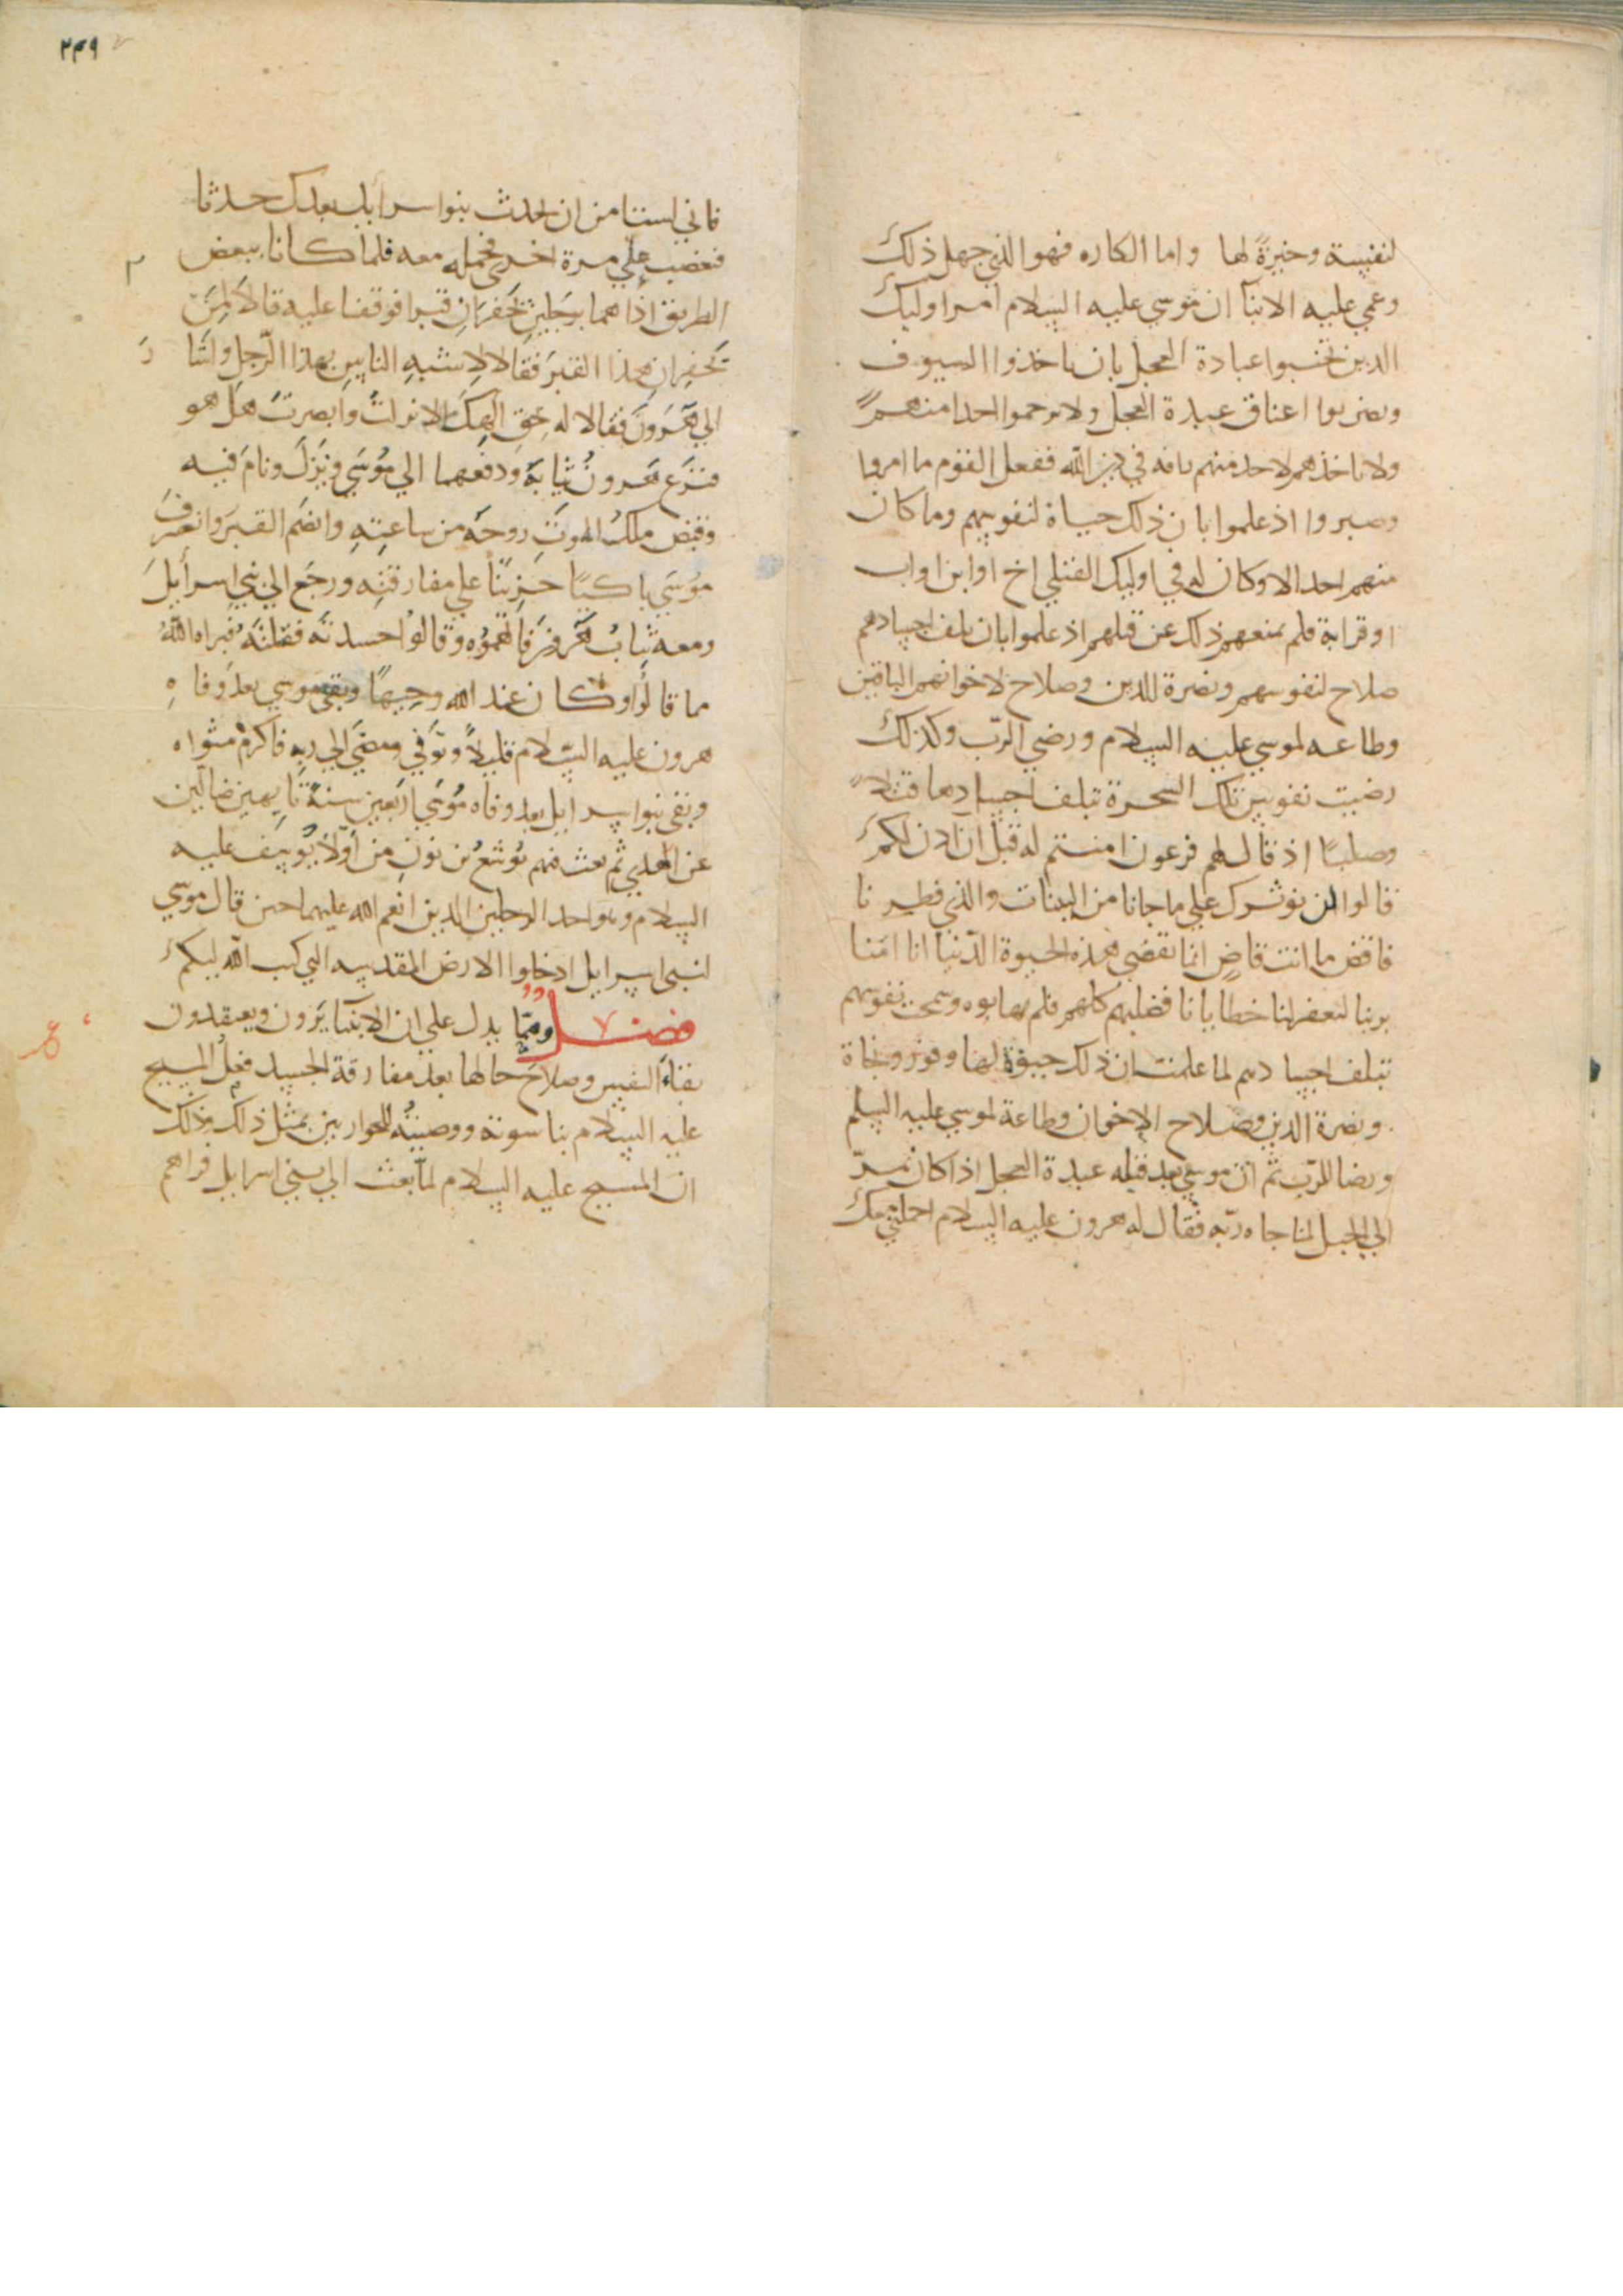 لنفيسة وخيرةً لها واما الكاره فهو الذي جهل ذلك
وعمي عليه الانبآ ان موسى عليه السلام امر اوليك
الذين تحسبوا عبادة العجل بان ياخذوا السيوف
ويضربوا اعناق عبدة العجل ولا يرحموا احدا منهم
ولا ياخذهم لاحد منهم رافه في دين الله ففعل القوم ما امروا
وصبروا اذ علموا بان ذلك حياة لنفوسهم وما كان
منهم احد الا وكان له في اوليك القتلي اخ او ابن او اب
او قرابة فلم يمنعهم ذلك عن قتلهم اذ علموا بان تلف اجسادهم
صلاح لنفوسهم ونصرة للدين وصلاح لاخوانهم الباقين
وطاعه لموسي عليه السلام ورضي الرب وكذلك
رضيت نفوس تلك السحرة بتلف اجسادها قتلاً
وصلبًا اذ قال لهم فرعون امنتم له قبل ان اذن لكم
قالوا لن نوثرك علي ما جانا من البينات والذي فطرنا
فاقض ما انت قاضٍ انما تقضي هذه الحيوة الدنيا انا امنا
بربنا ليغفر لنا خطايانا فصلبهم كلهم فلم يهابوه وسمحت نفوسهم
بتلف اجسادهم لما علمت ان ذلك حيوة لها وفوز ونجاة
ونصرة الدين وصلاح الاخوان وطاعة لموسي عليه السلم
ورضا للرب ثم ان موسي بعد قتله عبدة العجل اذا كان يمر
الي الجبل لمناجاه ربه فقال له هرون عليه السلام احملني معك
٢٤٩
فاني لست امن ان يحدث بنوا سرايل بعدك حدثا
فتغضب علي مرة اخري فحمله معه فلما كانا ببعض
الطريق اذا هما برجلين يحفران قبرا فوقفا عليه قالا لمن
تحفران هذا القبر فقالا لاشبه الناس بهذا الرجل واشارا
الي هرون فقالا له بحق الهك الا نزلت وابصرت هل هو
فنزع هرون ثيابه ودفعهما الي موسي ونزل ونام فيه
وقبض ملك الموت روحه من ساعته وانضم القبر وانصرف
موسي باكيًا حزينًا علي مفارقته ورجع الي بني اسرايل
ومعه ثياب هرون فاتهموه وقالوا حسدته فقتلته فبراه الله
مما قالوا وكان عند الله وجيهًا وبقي موسي بعد وفاه
هرون عليه السلام قليلاً وتوفي ومضي الي ربه فاكرم مثواه
وبقي بنوا سرايل بعد وفاه موسي اربعين سنة تايهين ضالين
عن الهدي ثم بعث منهم يوشع بن نون من اولاد يوسف عليه
السلام وهو احد الرجلين الذين انعم الله عليهما حين قال موسي
لبني اسرايل ادخلوا الارض المقدسه التي كتب الله لكم
فصل ومما يدل علي ان الانبيآ يرون ويعتقدون
بقاء النفس وصلاح حالها بعد مفارقة الجسد فعل المسيح
عليه السلام بناسوته ووصيته للحواريين بمثل ذلك وذلك
ان المسيح عليه السلام لما بعث الي بني اسرايل فراهم